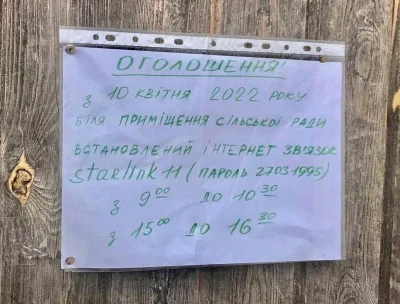 ОГОЛОШЕННЯ!
з 10 КВІТНЯ 2022 РОКУ
БІЛЯ ПРИМІЩЕННЯ СІЛЬСЬКОЇ РАДИ
ВСТАНОВЛЕНИЙ ІНТЕРНЕТ ЗВ'ЯЗОК
starlink 11 (ПАРОЛЬ 27031995)
з 9⁰⁰ ДО 10³⁰
з 15⁰⁰ ДО 16³⁰